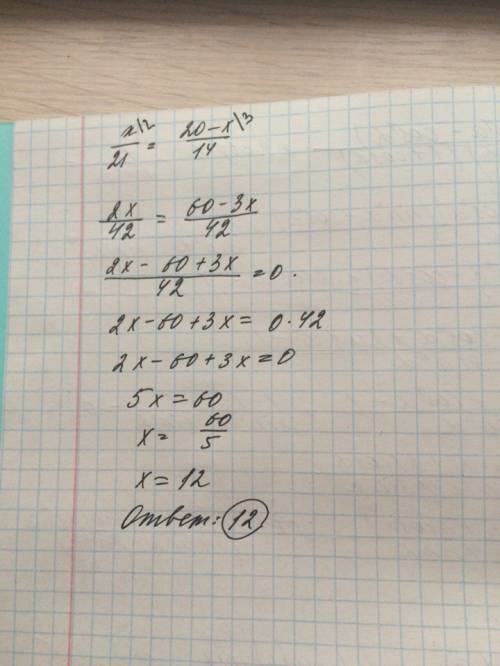 x\2/21 = 20-x\3/14
2x/42 = 60-3x/42
2x-60+3x/42 = 0.
2x-60+3x = 0·42
2x-60+3x=0
5x=60
x= 60/5
x=12
Ответ: 12